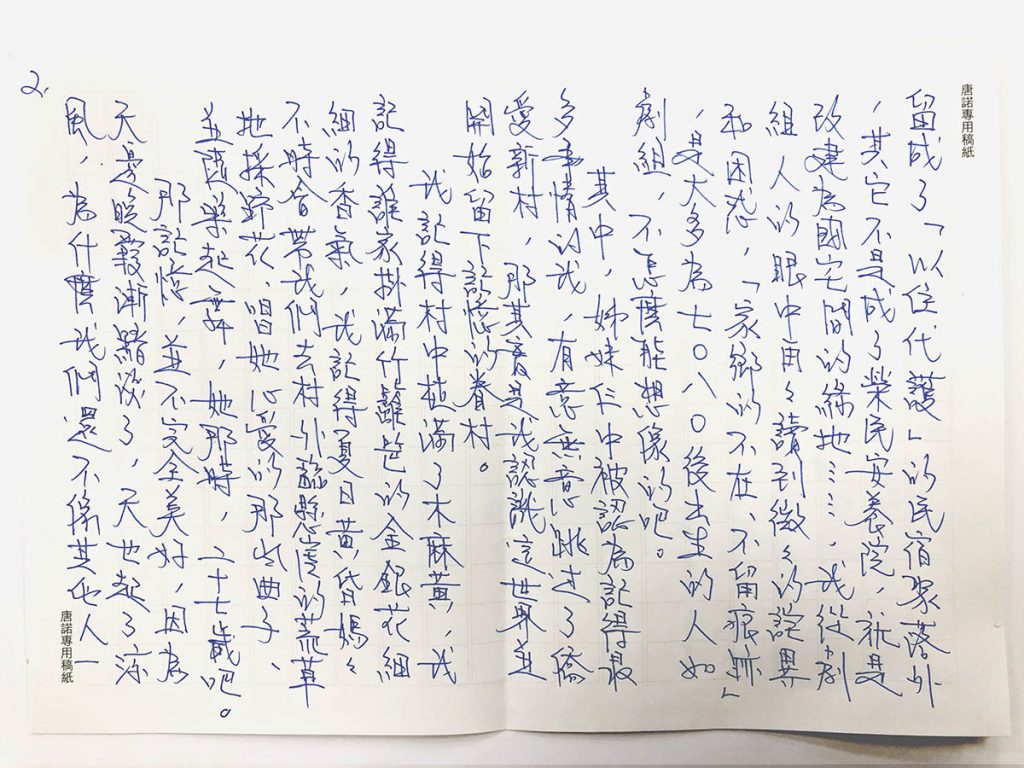 唐諾專用稿紙
留成了「以住代護」的民宿聚落外
，其它不是成了榮民安養院，就是
改建為國宅間的綠地……，我從劇
組人的眼中每々讀到微々的詫異
和困惑，「家鄉的不在、不留痕跡」
，是大多為七〇八〇後出生的人如
劇組，不怎麼能想像的吧。
其中，姊妹仨中被認為記得最
多事情的我，有意無意跳過了僑
愛新村，那其實是我認識這世界並
開始留下記憶的眷村。
我記得村中植滿了木麻黃，我
記得誰家掛滿竹籬笆的金銀花細
細的香氣，我記得夏日黃昏媽々
不時會帶我們去村外疏懸崖的荒草
地採野花、唱她心愛的那些曲子、
並隨興起舞，她那時，二十七歲吧。
那記憶，並不完全美好，因為
天邊晚霞漸黯淡了，天也起了涼
風，為什麼我們還不像其他人一
2.
唐諾專用稿紙